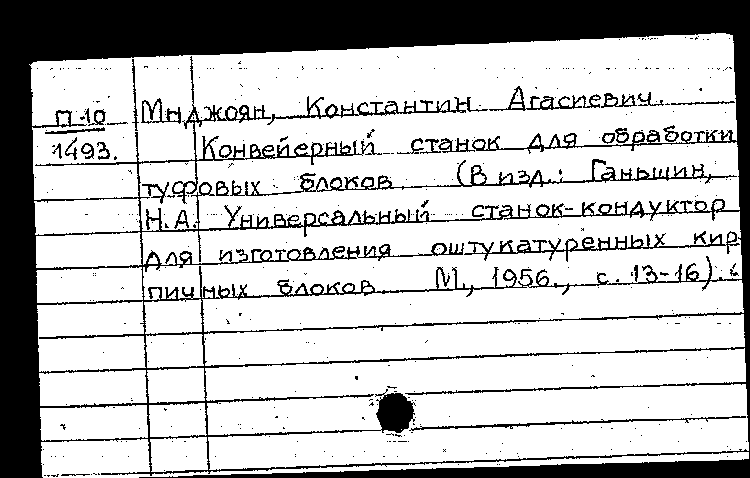 П-10
1493.
Мнджоян, Константин Агасиевич.
Конвейерный станок для обработки
туфовых блоков (В изд.: Ганьшин,
Н.А. Универсальный станок-кондуктор
для изготовления оштукатуренных кир-
пичных блоков. М., 1956., с. 13-16).